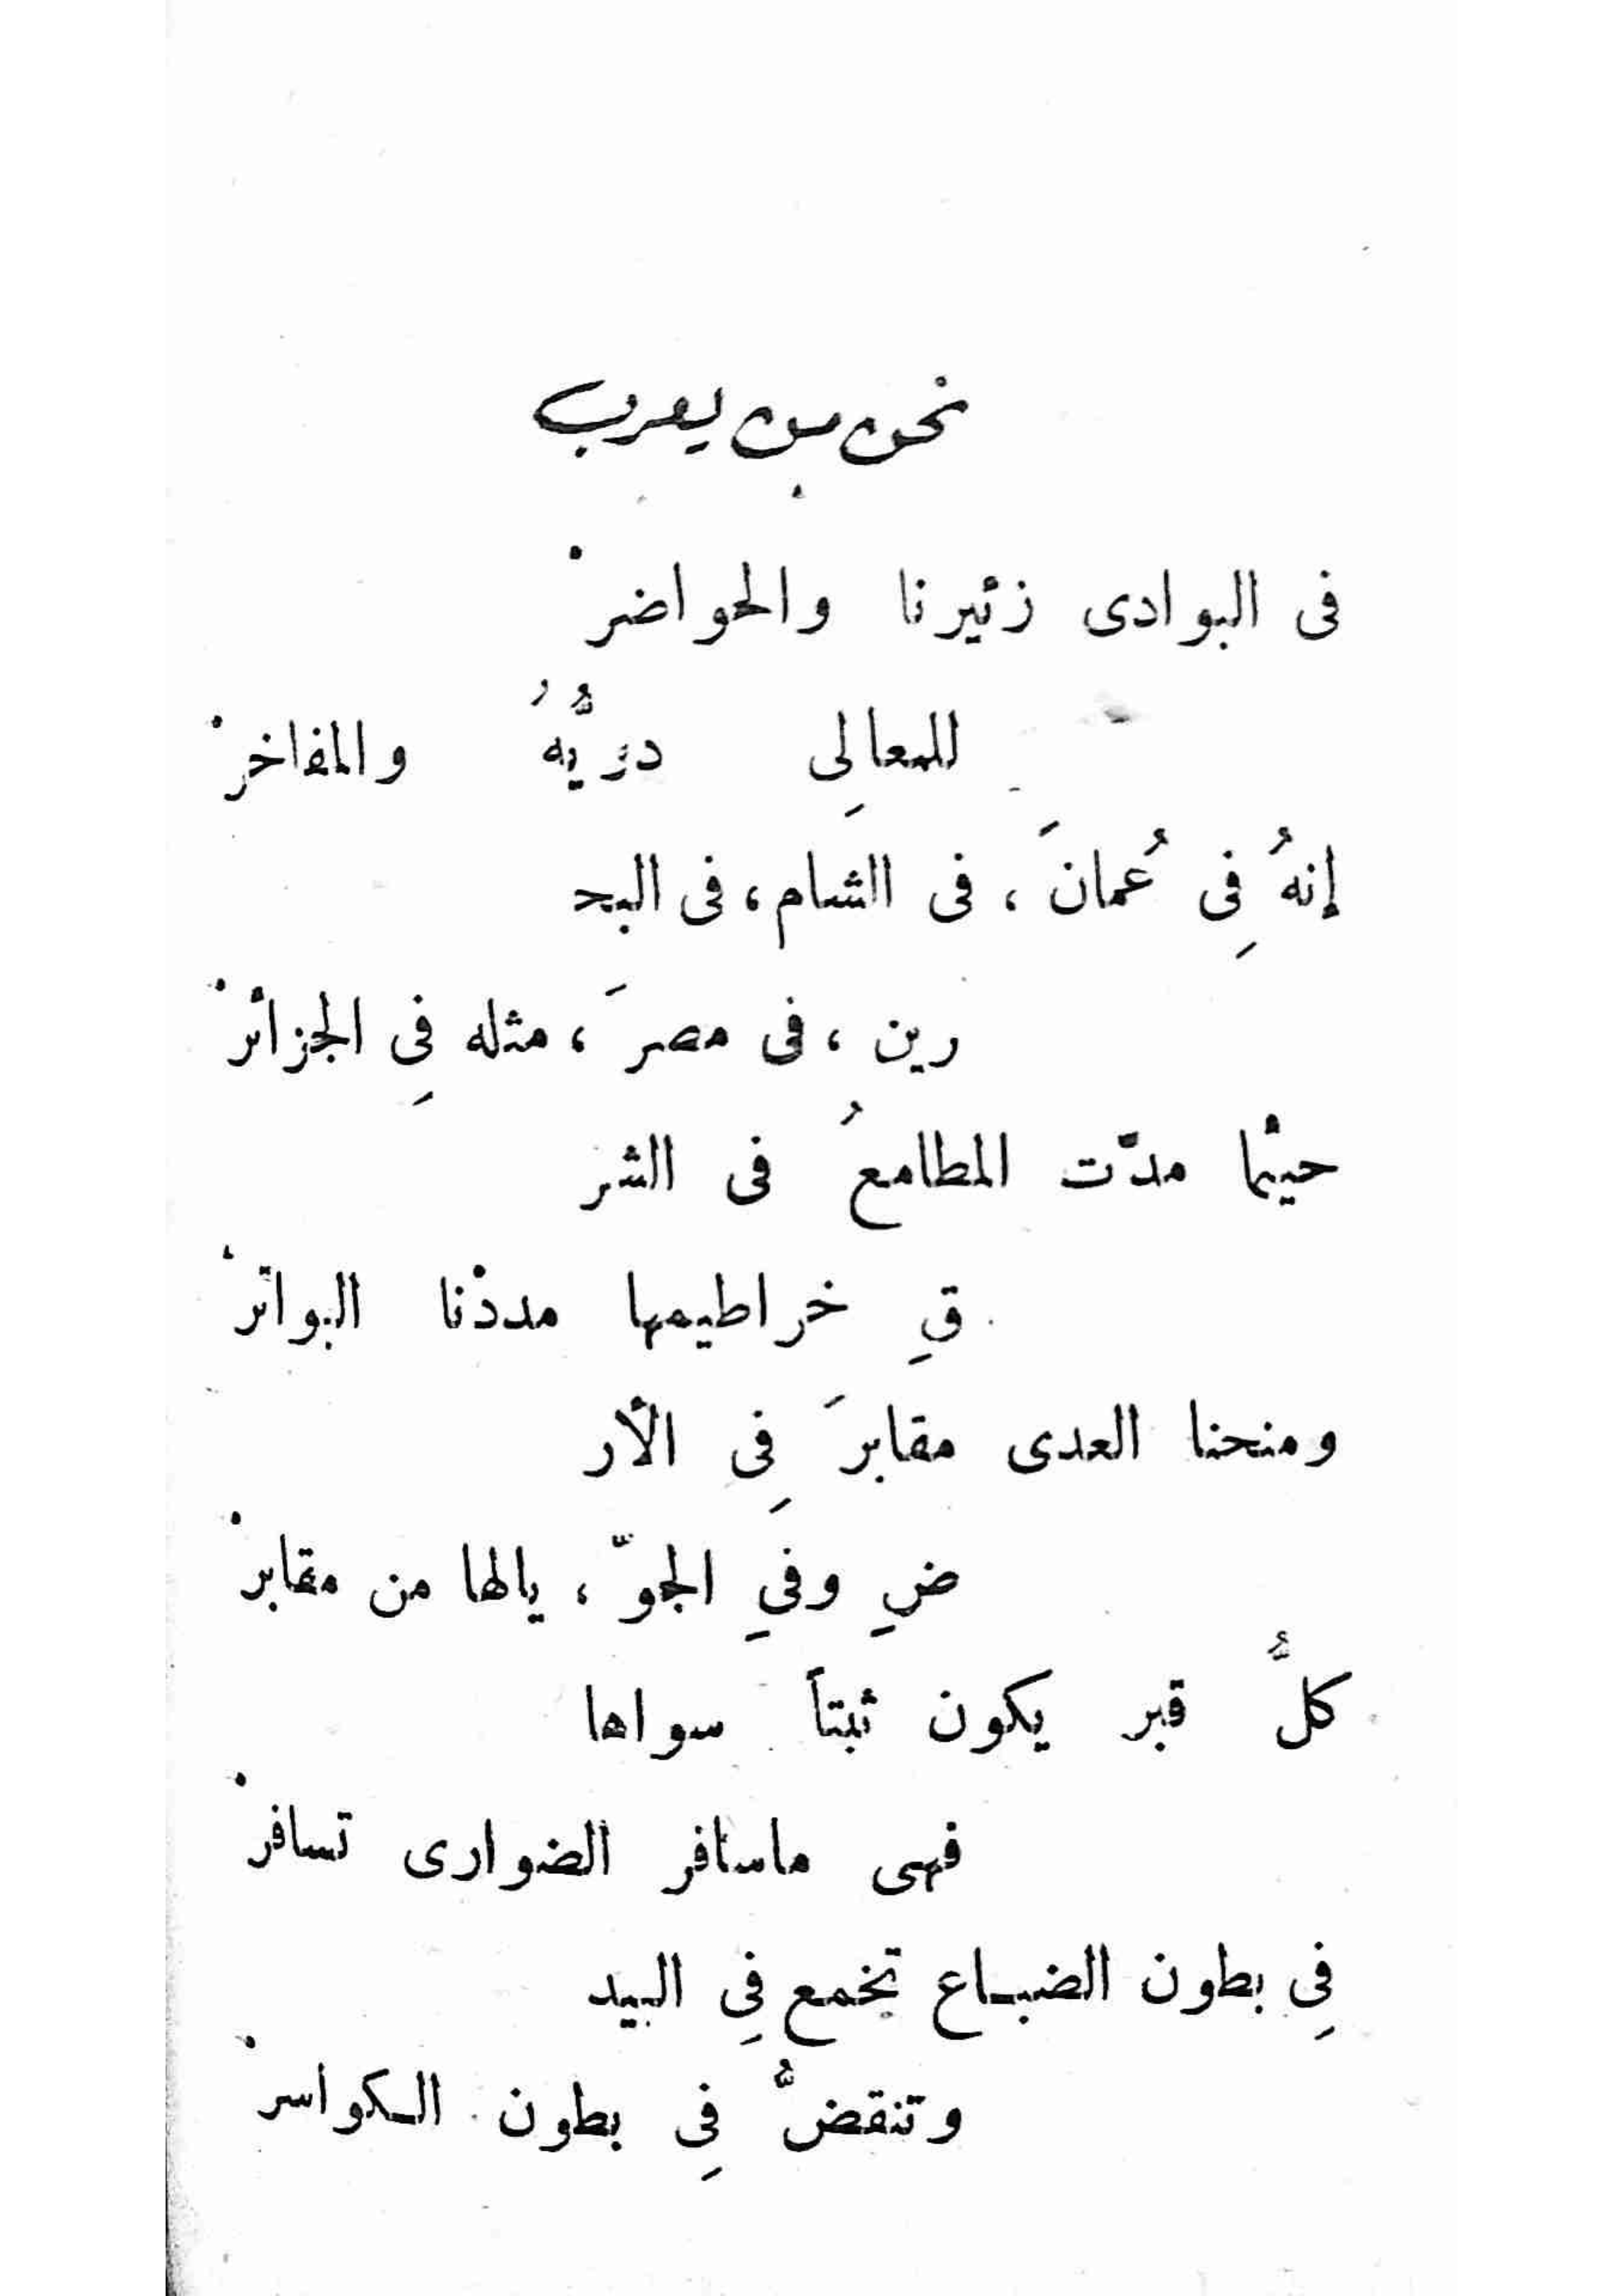 نحن من يعرب
فى البوادى زئيرنا والحواضرْ
للمعالِى دوِيُّهُ والمفاخرْ
إنهُ فِى عُمانَ ، فى الشام ، فى البحـ
رين ، فى مصرَ ، مثله فِى الجزائرْ
حيثما مدّت المطامعُ فى الشر
قِ خراطيمها مددْنا البواترْ
ومنحنا العدى مقابرَ فِى الأر
ضِ وفىِ الجوّ ، يالها من مقابرْ
كلُّ قبر يكون ثبتاً سواها
فهى ماسافر الضوارى تسافرْ
فِى بطون الضباع تخمع فِى البيد
وتنقضُّ فِى بطون الكواسرْ